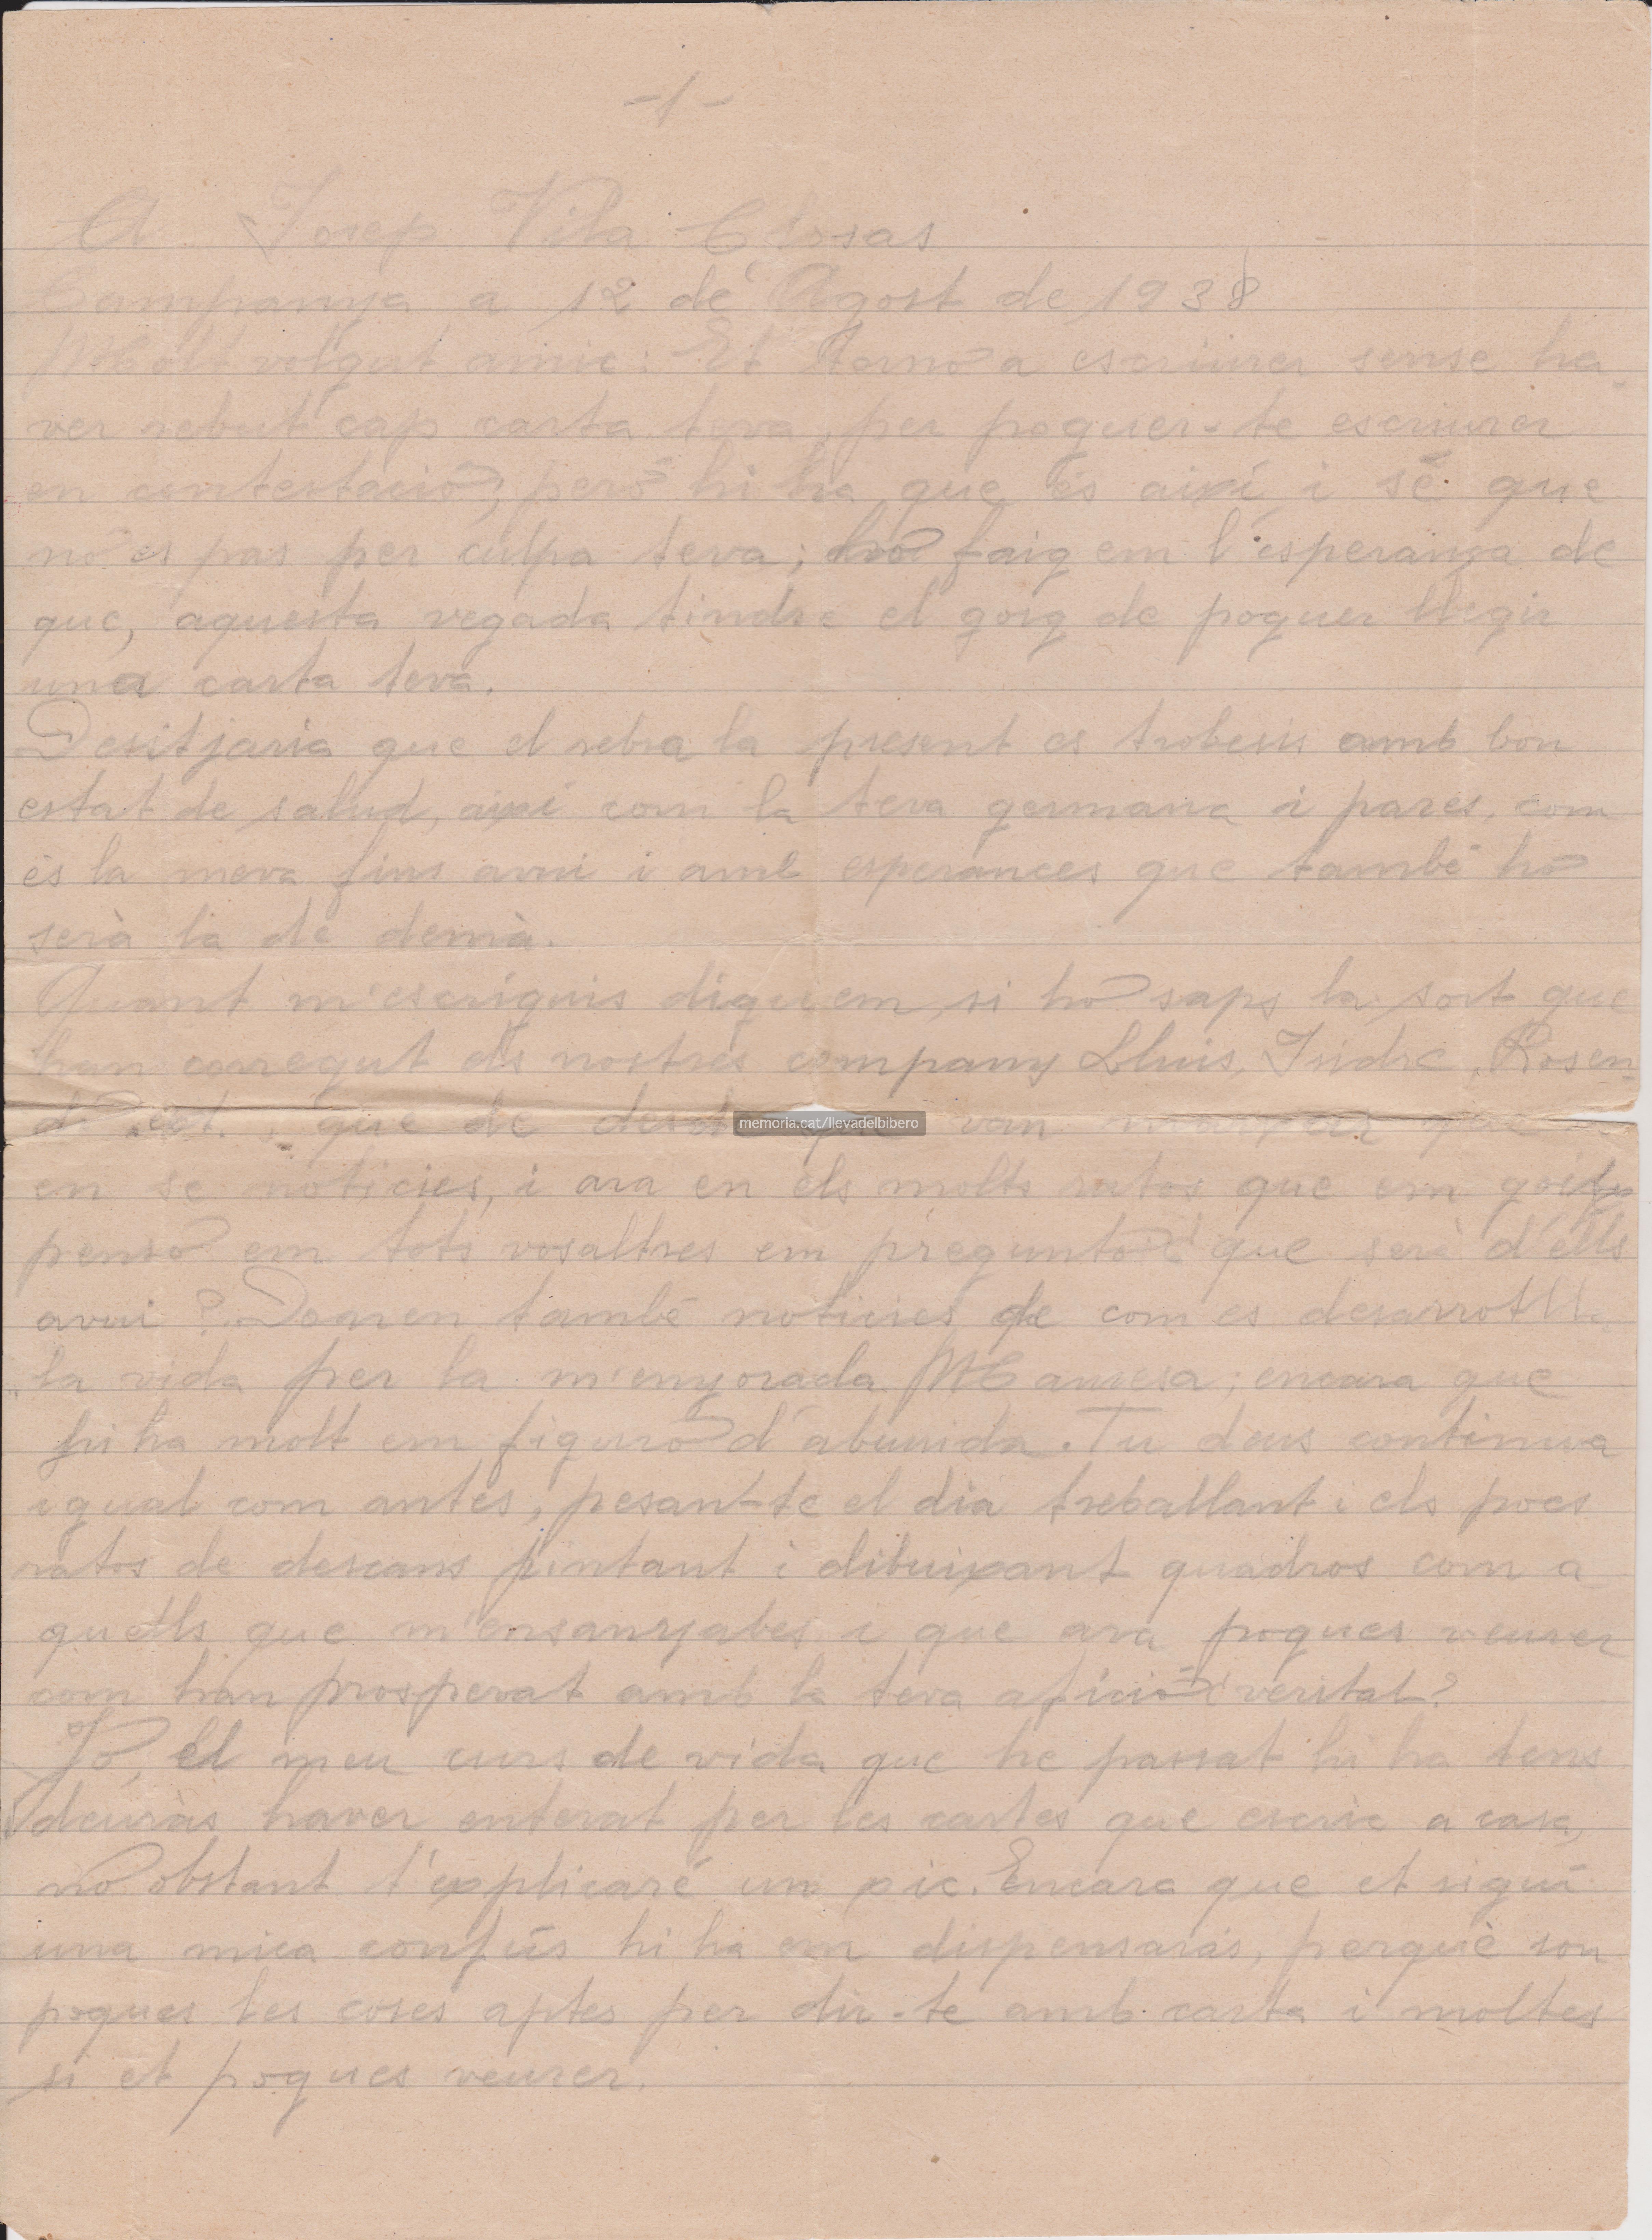 -1-
A Josep Vila Closas
Campanya a 12 de Agost de 1938
Molt volgut amic: Et torno a escriurer sense ha-
ver rebut cap carta teva, per poguer-te escriurer
en contestació, però hi ha que és aixi i sé que
no es pas per culpa teva; ho faig em l'esperança de
que, aquesta vegada tindre el goig de poguer llegir
una carta teva.
Desitjaria que el rebra la present es trobesis amb bon
estat de salud, aixi com la teva germana i pares, com
és la meva fins avui i amb esperances que també ho
serà la de demà.
Quant m'escriguis diguem, si ho saps la sort que
han corregut els nostres companys Lluis, Isidre, Rosen-
do, ect., que de desde que van
en se noticies, i ara en els molts ratos que em
penso em tots vosaltres em pregunto ¿que serà d'ells
avui? Donen també noticies de com es desarrotlla
la vida per la m'enyorada Manresa; encara que
hi ha molt em figuro d'aburrida. Tu deus continua
igual com antes, pesant-te el dia treballant i els pocs
ratos de descans pintant i dibuixant quadros com a
quells que m'ensanyabes i que ara pogues veurer
com han prosperat amb la teva afició ¿veritat?
Jo, el meu curs de vida que he passat hi ha tens
deuràs haver enterat per les cartes que escric a casa,
no obstant t'explicaré un pic. Encara que et sigui
una mica confús hi ha em dispensaràs, perquè son
poques les coses aptes per dir-te amb carta i moltes
si et pogues veurer.
memoria.cat/llevadelbibero